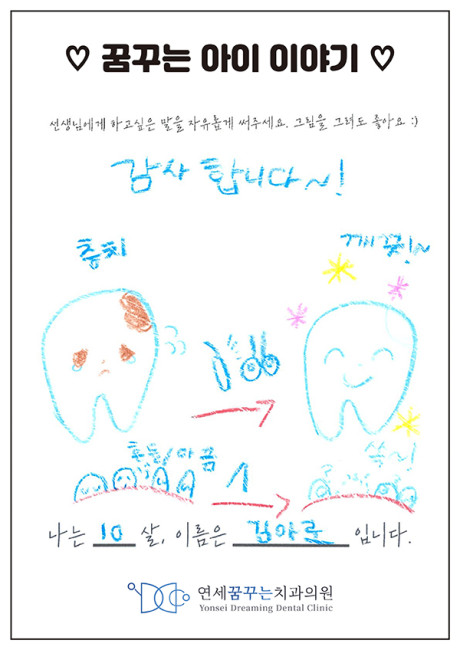 ♡ 꿈꾸는 아이 이야기 ♡
선생님에게 하고싶은 말을 자유롭게 써주세요. 그림을 그려도 좋아요 :)
감사 합니다~!
충치
깨끗!~
흔들/아픔
쏙~!
나는 10 살, 이름은 김아로 입니다.
연세꿈꾸는치과의원
Yonsei Dreaming Dental Clinic